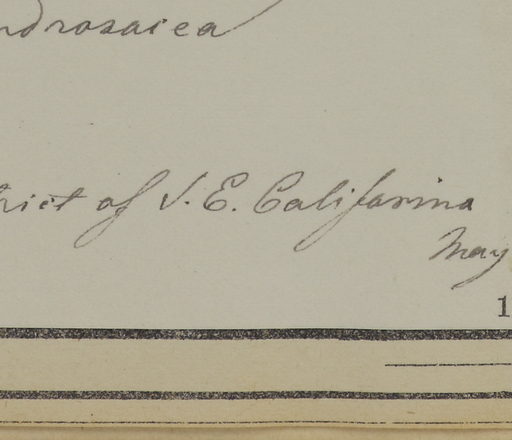 ndrosacea
trict of S. E. California
May
1